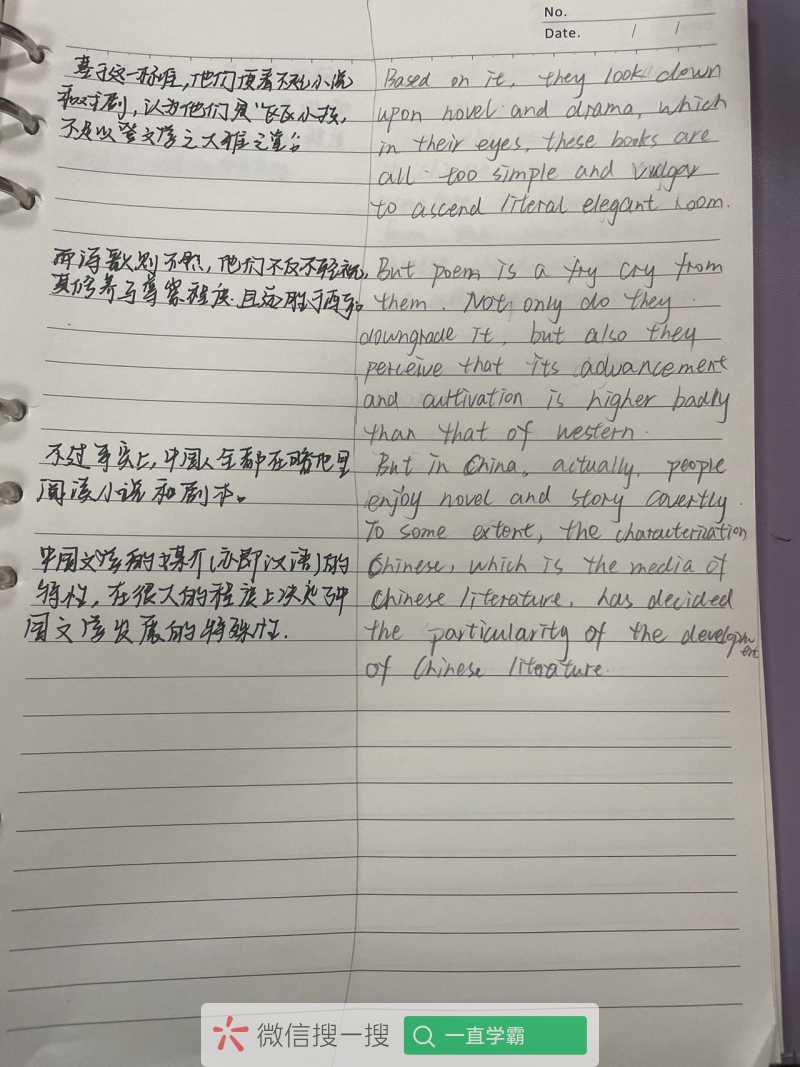 No.
Date. / /
基于这一标准,他们顶看不起小说
和戏剧,认为他们是"瓦瓦小孩,
不足以登文学之大雅之堂。
Based on it, they look down
upon novel and drama, which
in their eyes, these books are
all too simple and vulgar
to ascend literal elegant room.
而诗歌则不然,他们不反不轻视,
其修养与尊崇程度.且远胜于西方
But poem is a fry cry from
them. Not only do they
downgrade it, but also they
perceive that its advancement
and cultivation is higher badly
than that of western.
不过事实上,中国人全都在暗地里
阅读小说和剧本。
But in China, actually, people
enjoy novel and story covertly.
中国文学的媒介(亦即汉语)的
特性,在很大的程度上决定了中
国文学发展的特殊性.
To some extent, the characterization
Chinese, which is the media of
Chinese literature, has decided
the particularity of the development
of Chinese literature.
微信搜一搜
一直学霸